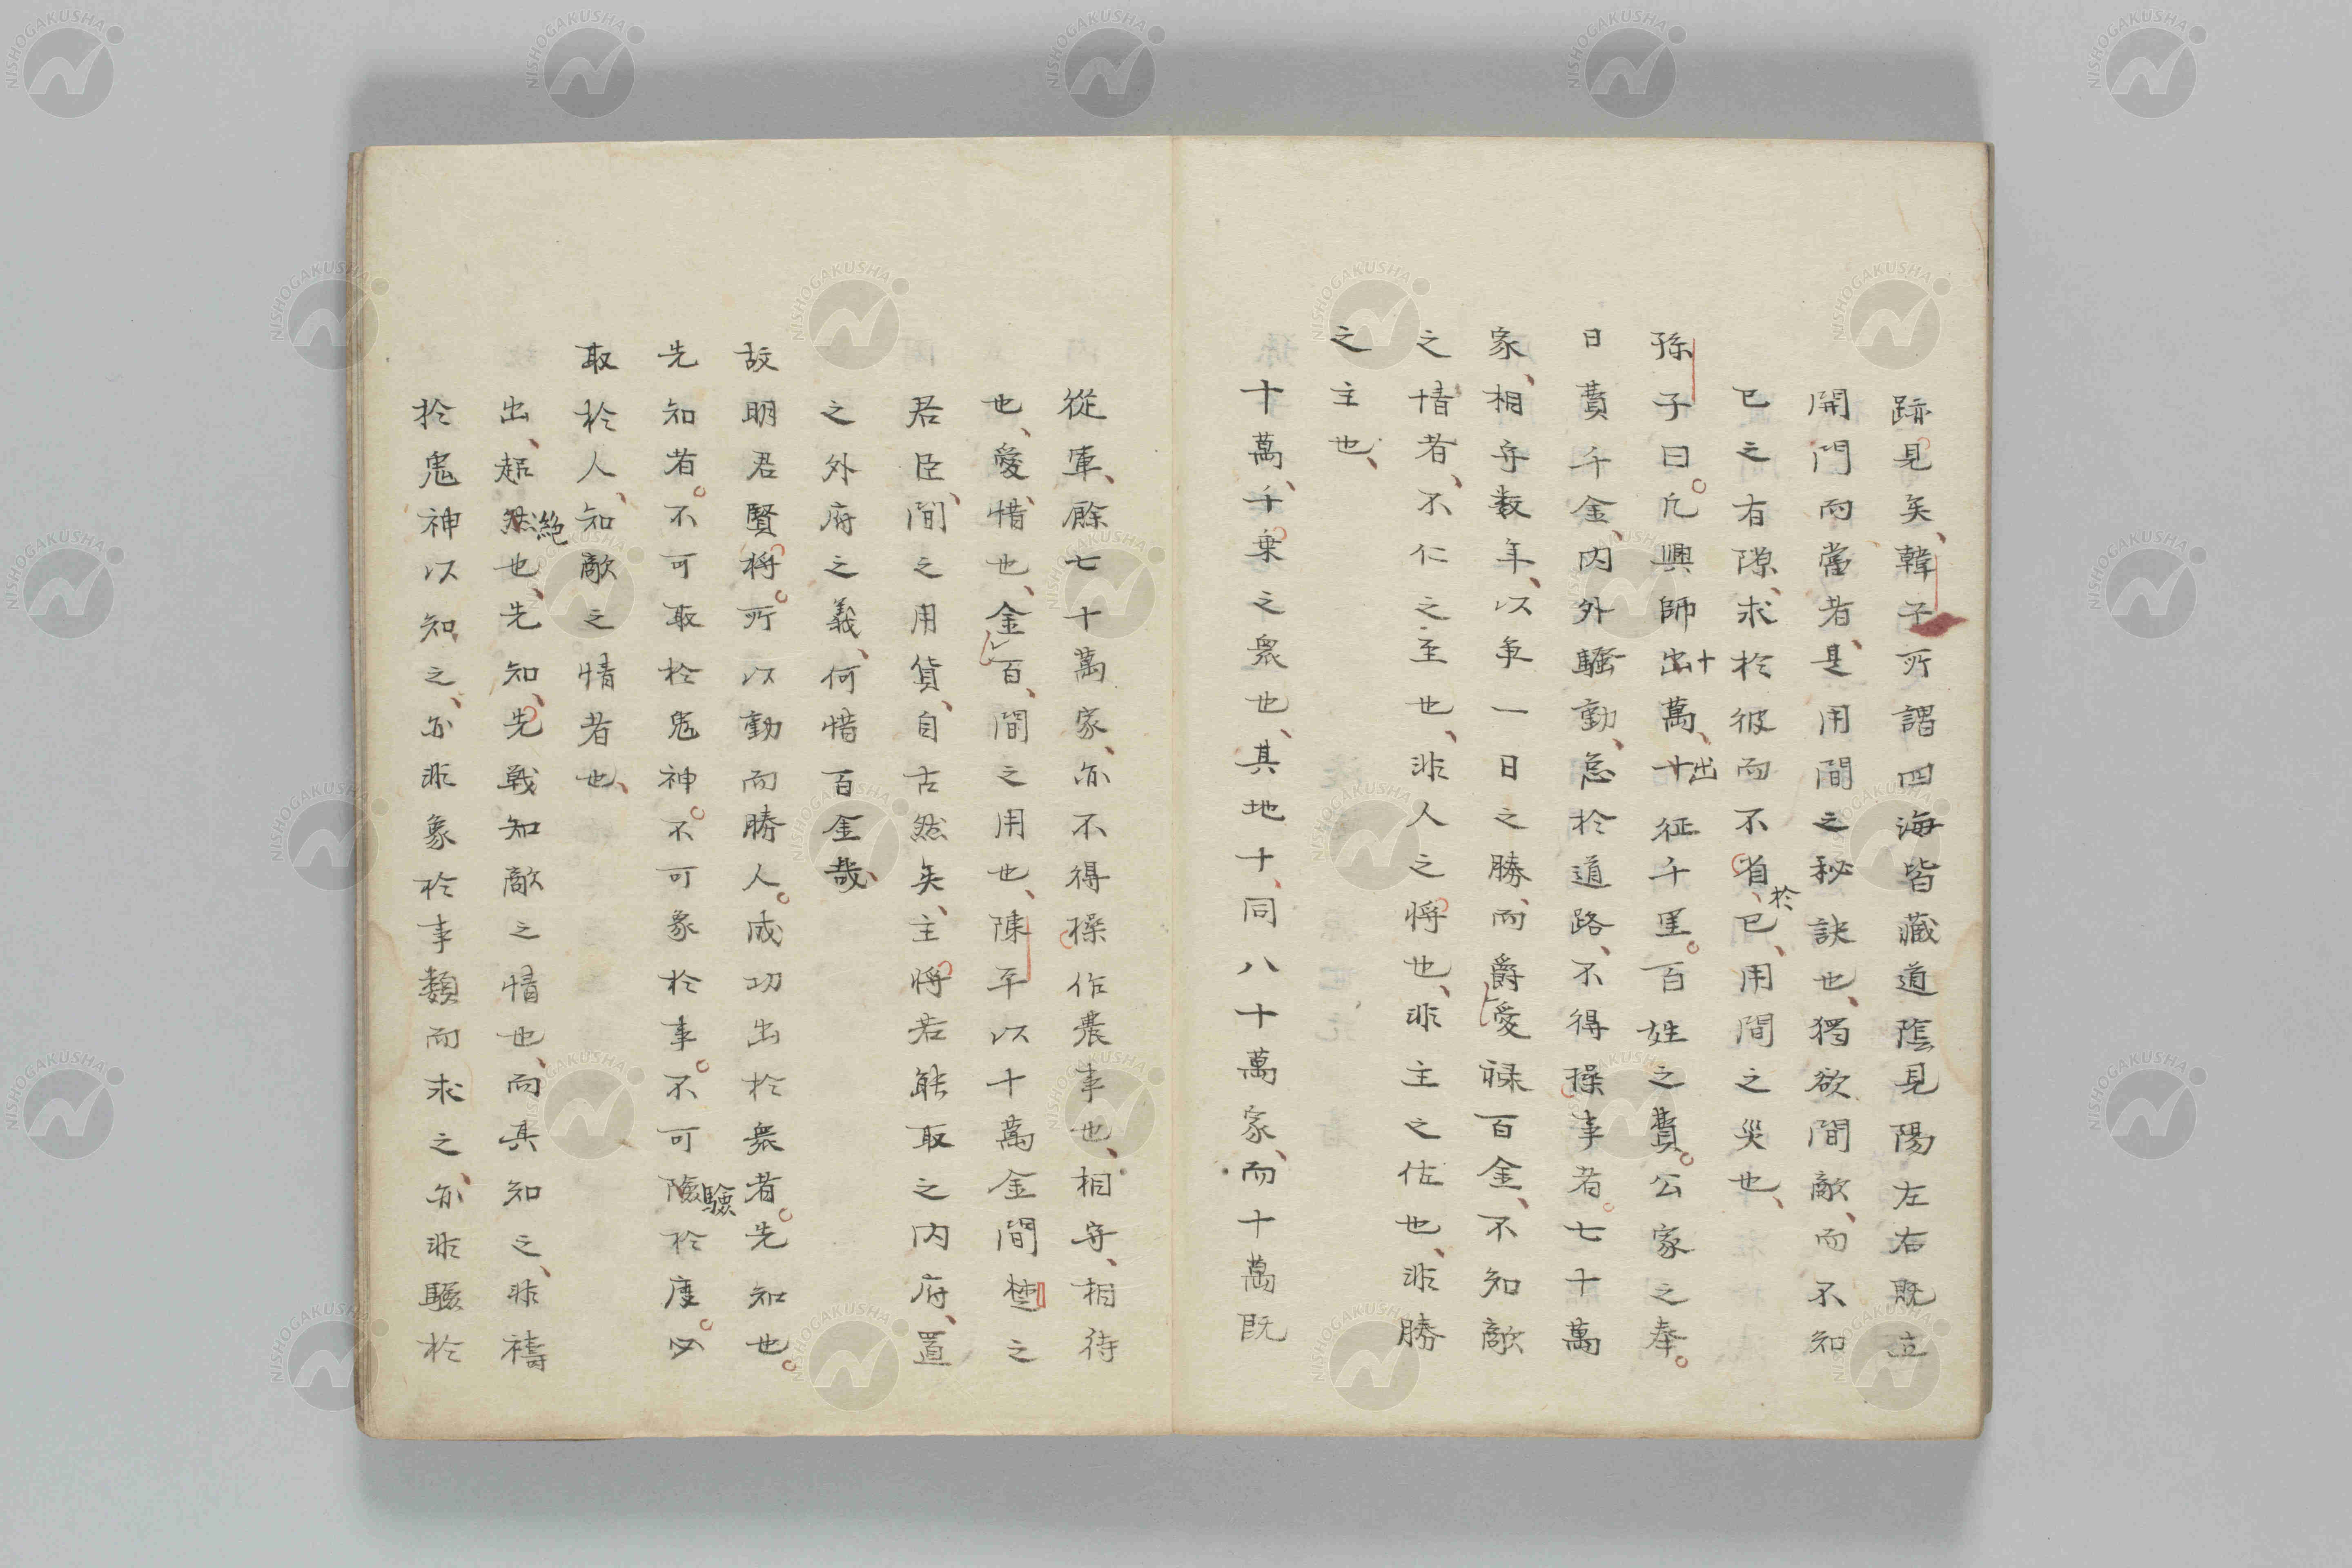 跡見矣、韓子所謂四海皆藏道陰見陽左右既立
開門而當者、是用間之秘訣也、獨欲間敵、而不知
已之有隙、求於彼而不省、於已、用間之災也、
孫子曰。凡興師出十萬、十出征千里。百姓之費。公家之奉。
日費千金、内外騷動、怠於道路、不得操事者。七十萬
家、相守数年、以爭一日之勝、而爵愛禄百金、不知敵
之情者、不仁之至也、非人之將也、非主之佐也、非勝
之主也、
十萬、千乗之衆也、其地十、同八十萬家、而十萬既
從軍、餘七十萬家、亦不得操作農事也、相守、相待
也、愛惜也、金百、間之用也、陳平以十萬金間楚之
君臣、間之用貨、自古然矣、主將若能取之内府、置
之外府之義、何惜百金哉、
故明君賢將。所以動而勝人。成功出於衆者。先知也。
先知者。不可取於鬼神。不可象於事。不可險驗於度。必
取於人、知敵之情者也、
出、超然絶也、先知、先戦知敵之情也、而其知之、非禱
於鬼神以知之、亦非象於事類而求之、亦非驗於
NISHOGAKUSHA